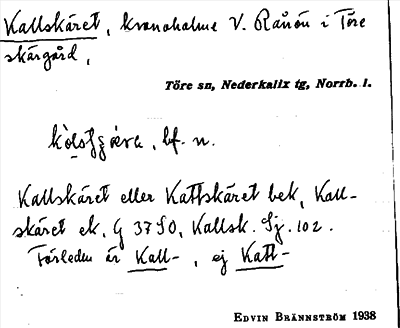 Kallskäret, kronoholme V. Rånön i Töre
skärgård,
Töre sn, Nederkalix tg, Norrb. l.
bf. n.
Kallskäret eller Kattskäret bek, Kall-
skäret ek, G 3750, Kallsk. Sj. 102.
Förleden är Kall-, ej Katt-
EDVIN BRÄNNSTRÖM 1938